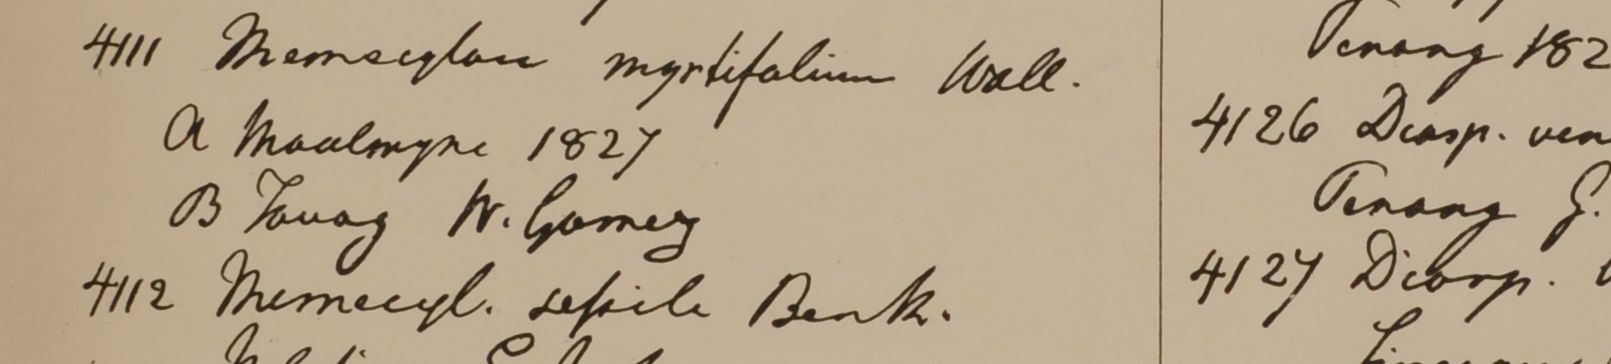 4111 Memecylon myrtifolium Wall.
A Moalmyne 1827
B Tavoy W. Gomez
4112 Memecyl. sessile Benth.
Penang 182
4126 Diosp. ven
Penang G.
4127 Diosp.